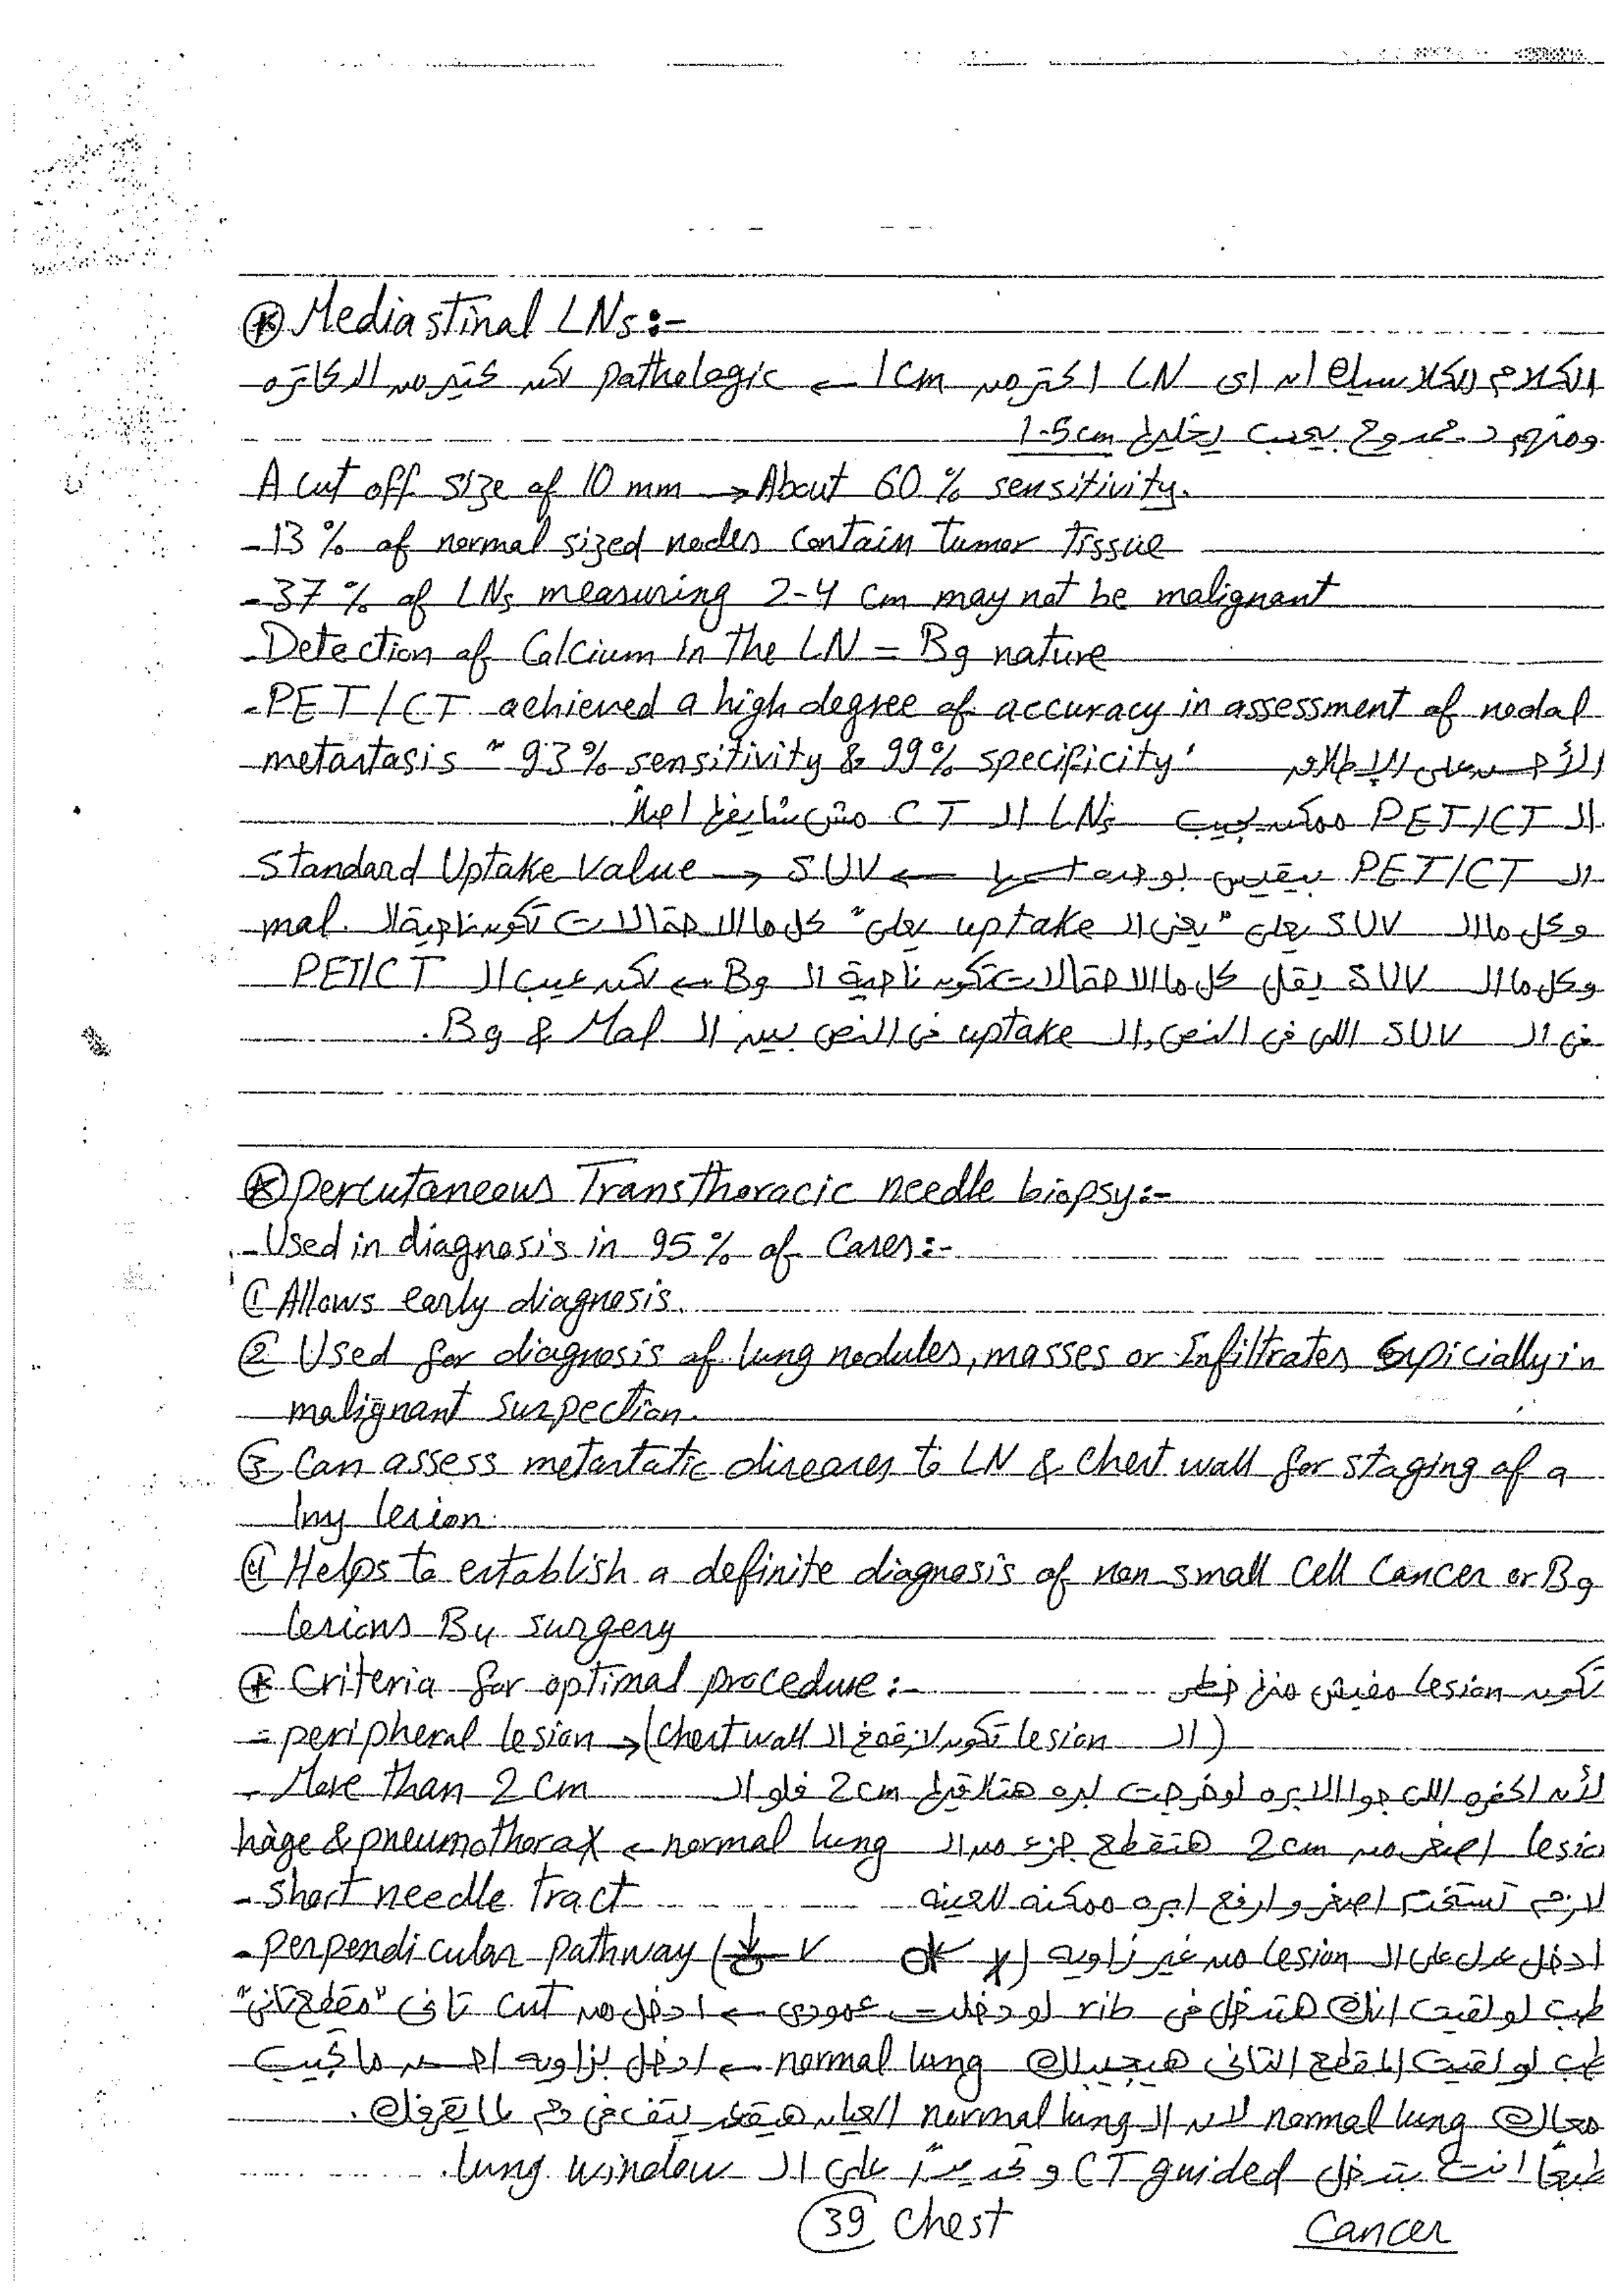 * Mediastinal LNs:-
الكلام الكلاسيك ان اى LN اكتر من 1cm ← pathologic لكن كتير من الدكاتره
ومنهم د.ممدوح يحب يخليها 1.5cm
A cut off size of 10 mm → About 60% sensitivity.
-13% of normal sized nodes contain tumor tissue
-37% of LNs measuring 2-4 cm may not be malignant
-Detection of Calcium in the LN = Bg nature
-PET/CT achieved a high degree of accuracy in assessment of nodal
metastasis ~ 93% sensitivity & 99% specificity الأحسن على الإطلاق
الـ PET/CT ممكن يجيب LNs الـ CT مش شايفها اصلاً.
الـ PET/CT بيقيس بوحدة اسمها ← SUV → Standard Uptake Value
وكل ما الـ SUV يعلى "يعنى الـ uptake يعلى" كل ما الاحتمالات تكون ناحية الـ mal.
وكل ما الـ SUV يقل كل ما الاحتمالات تكون ناحية الـ Bg ← لكن عيب الـ PET/CT
فى الـ SUV اللى فى النص, الـ uptake فى النص بين الـ Bg & Mal.
* Percutaneous Transthoracic needle biopsy:-
-Used in diagnosis in 95% of Cases:-
① Allows early diagnosis.
② Used for diagnosis of lung nodules, masses or Infiltrates Espicially in
malignant suspection.
③ Can assess metastatic diseases to LN & chest wall for staging of a
lny lesion.
④ Helps to establish a definite diagnosis of non small cell Cancer or Bg
lesions By surgery
* Criteria for optimal procedure:- تكون lesion مفيش منها خطر
- peripheral lesion → (الـ lesion تكون لازقة فى الـ chest wall)
- More than 2 cm لأن اللى جوا الابره لو خرجت بره هتلاقيها 2cm فلو الـ
lesion اصغر من 2cm هتقطع جزء من الـ normal lung ← hage & pneumothorax
- short needle tract لازم تستخدم اصغر وارفع ابره ممكنه للعينه
- perpendicular pathway ادخل عدل على الـ lesion من غير زاويه
طب لو لقيت انك هتدخل فى rib لو دخلت عمودى ← ادخل من cut تانى "مقطع تانى"
طب لو لقيت المقطع التانى هيجيبلك normal lung ← ادخل بزاويه احسن ما تجيب
معاك normal lung لان الـ normal lung العيان هيقعد يتف فى دم
طبعاً انت بتدخل CT guided و على الـ lung window.
39 chest
Cancer